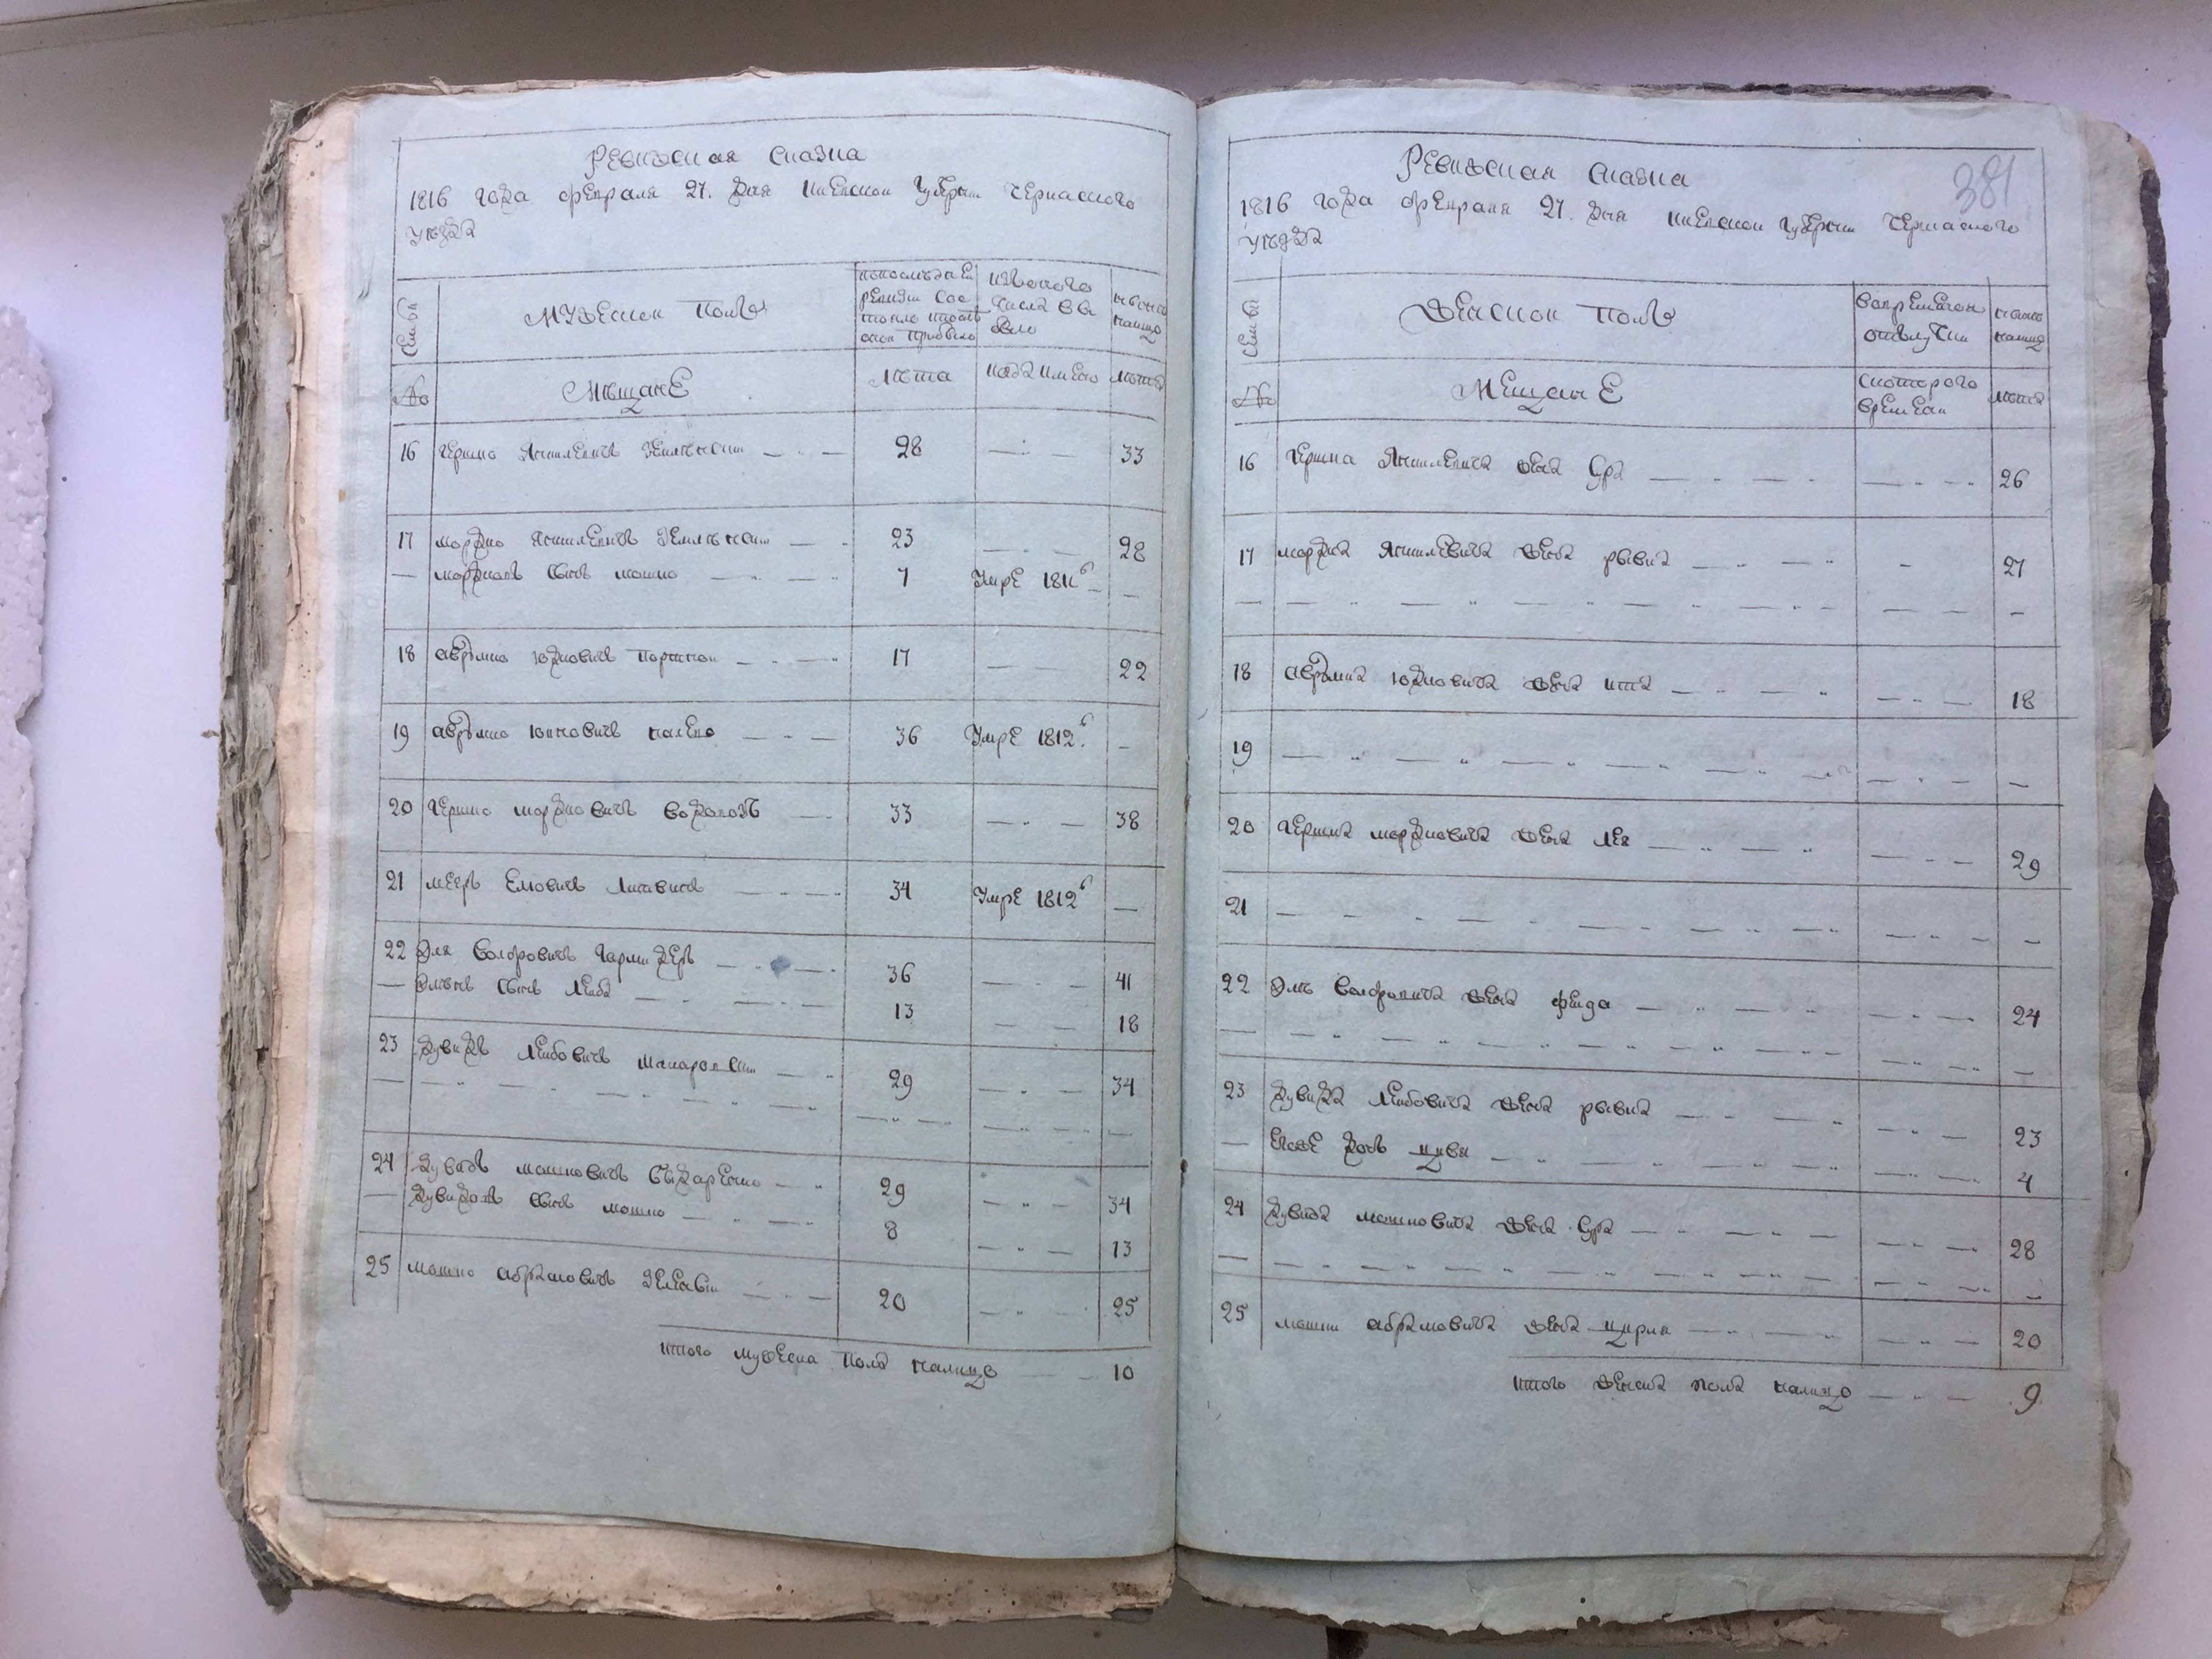 Ревижская сказка
1816 года февраля 27. дня Киевской губернии Черкаского
уезда
Семьи
Мужеской полъ
по последней
ревизии сос
тояло и после
оной прибыло
изъ оного
числа вы
было
ныне на
лицо
№
Мѣщане
Лѣта
когда имянно
лѣта
16 Гершко Янкилевичъ 28 — 33
17 Мордко Янкилевичъ 23 — 28
— Мордковъ сынъ Мошко 7 Умре 1811г —
18 Аврумко Юдковичъ 17 — 22
19 Аврумко 36 Умре 1812г. —
20 Гершко Мордковичъ Водовозъ 33 — 38
21 Мееръ Елиовичъ Литвинъ 34 Умре 1812г —
22 Эля Волфовичъ 36 — 41
— Элинъ сынъ Лейба 13 — 18
23 Дувидъ Лейбовичъ 29 — 34
24 Дувидъ Мошковичъ 29 — 34
— Дувидовъ сынъ Мошко 8 — 13
25 Мошко Абрамовичъ 20 — 25
Итого мужеска пола налицо — 10
381
Ревижская сказка
1816 года февраля 27. дня Киевской губернии Черкаского
уезда
Семьи
Женской полъ
во временной
отлучки
ныне
налицо
№
Мещане
с которого
времени
лѣта
16 Гершка Янкилевича жена Сура — 26
17 Мордка Янкилевича жена Рывка — 27
18 Аврумка Юдковича жена Ита — 18
19 —
20 Гершка Мордковича жена Лея — 29
21 —
22 Эли Волфовича жена Фейга — 24
23 Дувида Лейбовича жена Рывка — 23
— Его же дочь Цивя — 4
24 Дувида Мошковича жена Сура — 28
25 Мошки Абрамовича жена Цирля — 20
Итого женска пола налицо — 9